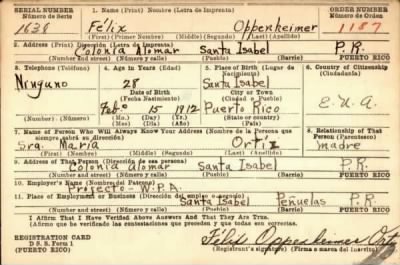 SERIAL NUMBER 1. Name (Print) Nombre (Letra de Imprenta) ORDER NUMBER
Número de Serie Número de Orden
1638 Félix Oppenheimer 1187
(First) (Primer Nombre) (Middle) (Segundo) (Last) (Apellido)
2. Address (Print) Dirección (Letra de Imprenta)
Colonia Alomar Santa Isabel P.R.
(Number and street) (Número y calle) (Town) (Pueblo) PUERTO RICO
3. Telephone (Teléfono) 4. Age in Years (Edad) 5. Place of Birth (Lugar de Nacimiento) 6. Country of Citizenship (Ciudadanía)
Ninguno 28 Santa Isabel
Date of Birth City or Town
(Fecha Nacimiento) (Ciudad o Pueblo)
Febo 15 1912 Puerto Rico E.U.A.
(Number) (Número) (Mo.) (Day) (Yr.) (State or country)
(Mes) (Día) (Año) (Estado o país)
7. Name of Person Who Will Always Know Your Address (Nombre de la Persona que siempre sabrá su dirección) 8. Relationship of That Person (Parentesco)
Sra. María Ortiz madre
(First) (Nombre) (Middle) (Segundo) (Last) (Apellido)
9. Address of That Person (Dirección de esa persona)
Colonia Alomar Santa Isabel P.R.
(Number and street) (Número y calle) (Town) (Pueblo) PUERTO RICO
10. Employer's Name (Nombre del Patrono)
Projecto - W.P.A.
11. Place of Employment or Business (Dirección del empleo o negocio)
Santa Isabel Peñuelas P.R.
(Number and street) (Número y calle) (Town) (Pueblo) PUERTO RICO
I Affirm That I Have Verified Above Answers and That They Are True.
(Afirmo que he verificado las contestaciones que preceden y que todas son ciertas.)
REGISTRATION CARD
D. S. S. Form 1
(PUERTO RICO)
Félix Oppenheimer Ortiz
(Registrant's signature) (Firma o marca del inscrito)